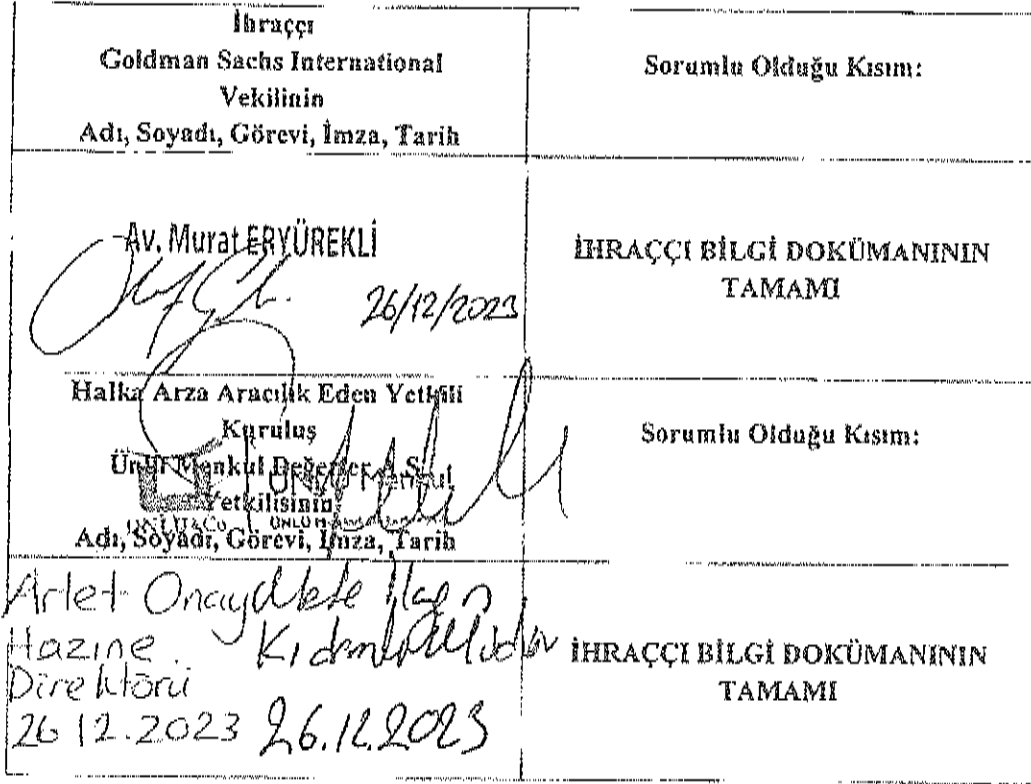 İhraççı
Goldman Sachs International
Vekilinin
Adı, Soyadı, Görevi, İmza, Tarih
Sorumlu Olduğu Kısım:
Av. Murat ERYÜREKLİ
26/12/2023
İHRAÇÇI BİLGİ DOKÜMANININ
TAMAMI
Halka Arza Aracılık Eden Yetkili
Kuruluş
Ünlü Menkul Değerler A.Ş.
Yetkilisinin
Adı, Soyadı, Görevi, İmza, Tarih
ÜNLÜ Menkul
ÜNLÜ&Co
Sorumlu Olduğu Kısım:
Arlet Onay
Hazine
Direktörü
26.12.2023
Kıdemli Müdür
26.12.2023
İHRAÇÇI BİLGİ DOKÜMANININ
TAMAMI